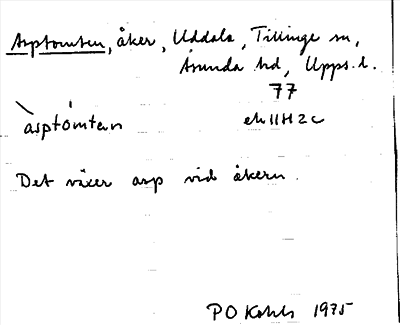 Asptomten, åker, Uddala, Tillinge sn,
Åsunda hd, Upps. l.
77
àsptómtan
ek 11H2c
Det växer asp vid åkern.
PO Kohls 1975